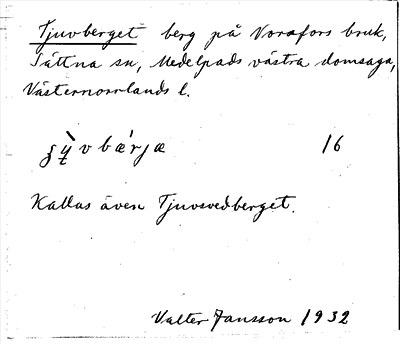 Tjuvberget berg på Norafors bruk,
Sättna sn, Medelpads västra domsaga,
Västernorrlands l.
16
Kallas även Tjuvsvedberget.
Valter Jansson 1932